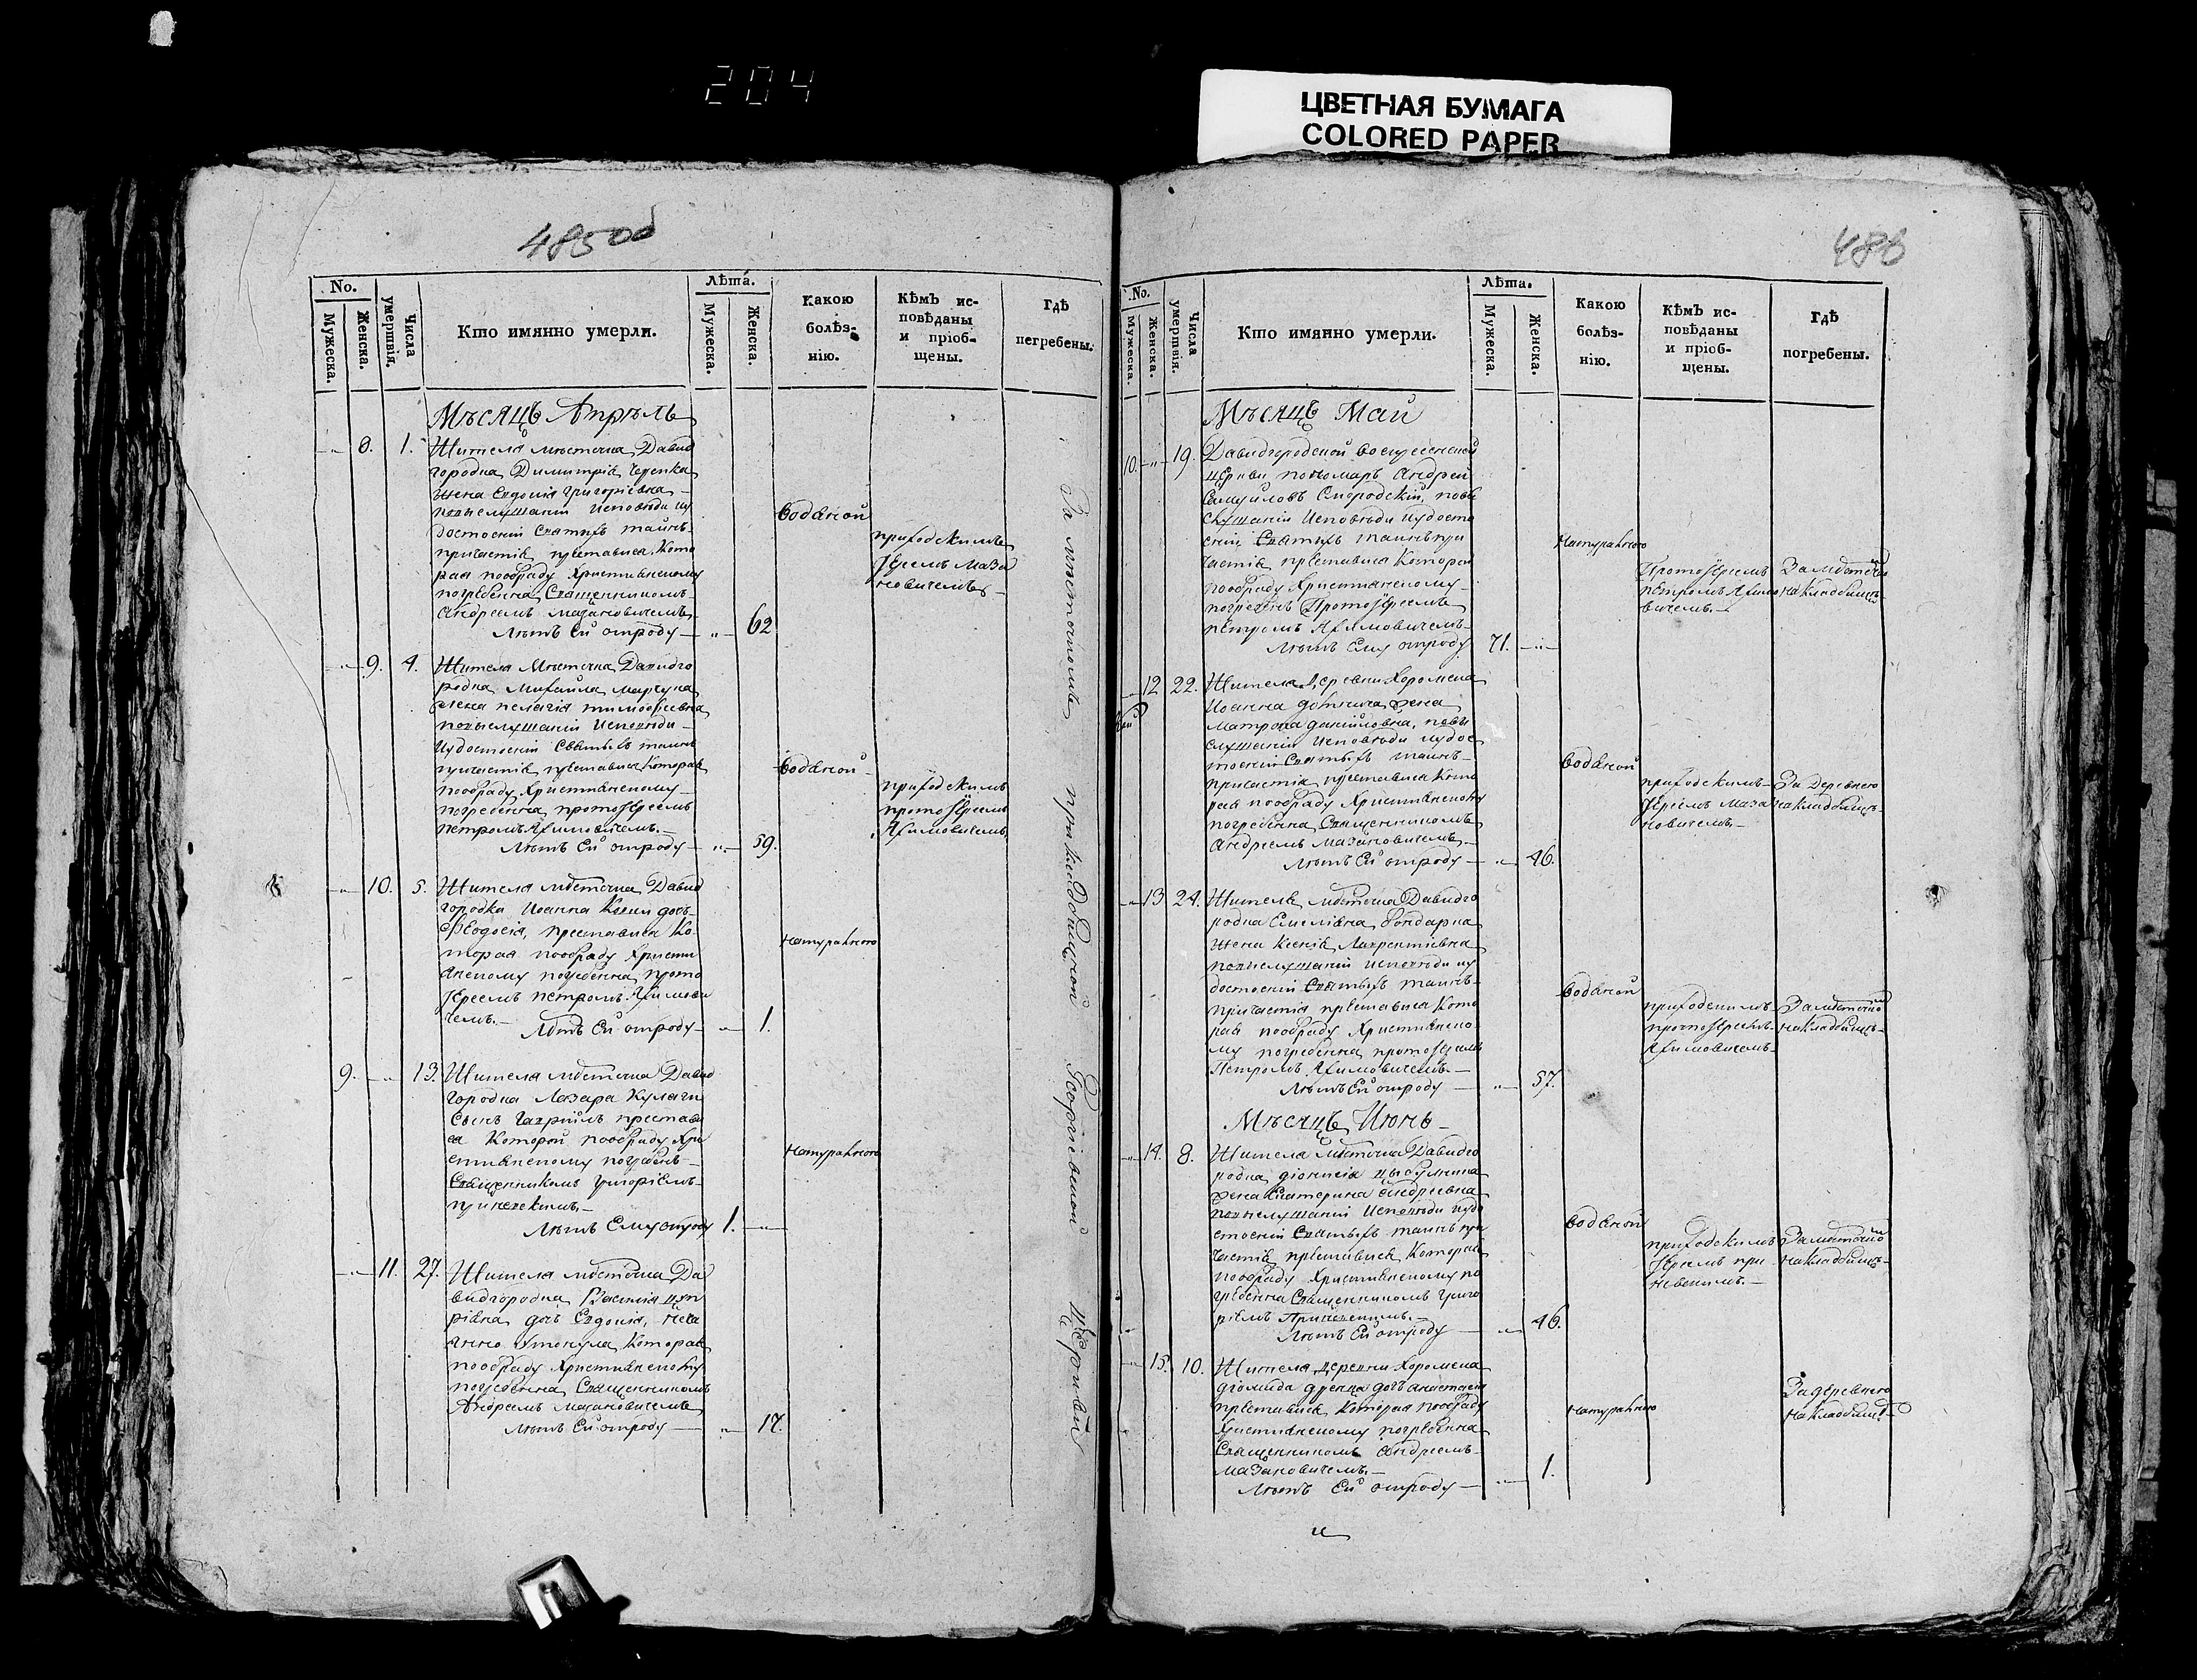 204
ЦВЕТНАЯ БУМАГА
COLORED PAPER
485 об
No.
Мужеска.
Женска.
Числа умертвія.
Кто имянно умерли.
Лѣта.
Мужеска.
Женска.
Какою болѣз-
нію.
Кѣмъ ис-
повѣданы
и пріоб-
щены.
Гдѣ
пегребены.
Мѣсяцъ Апрѣль
8. 1. Жителя мѣстечка Давид
городка Димитрія
жена Евдокія Григоріевна
по выслушаніи исповѣди и у
достоеніи Святыхъ таинъ
причастія преставися, Кото
рая по обряду Христіянскому
погребенна Священникомъ
Андреемъ Мазановичемъ
Лѣтъ Ей отроду 62
Водяной
приходскимъ
Іереемъ Маза
новичемъ
9. 4. Жителя Мѣстечка Давидго
родка Михайла
жена Пелагія Тимофеевна
по выслушаніи Исповѣди
и удостоеніи Святыхъ таинъ
причастія преставися Которая
по обряду Христіянскому
погребенна протоіереемъ
Петромъ Якимовичемъ
Лѣтъ Ей отроду 59.
Водяной
приходскимъ
протоіереемъ
Якимовичемъ
10. 5. Жителя мѣстечка Давид
городка Иоанна дочь
Феодосія, преставися Ко
торая по обряду Христи
янскому погребенна прото
Іереемъ Петромъ Якимови
чемъ. Лѣтъ Ей отроду 1.
натуральною
9. 13. Жителя мѣстечка Давид
городка Лазара
Сынъ Гавріилъ престави
ся Которой по обряду Хри
стіянскому погребенъ
Священникомъ Григоріемъ
Лѣтъ Ему отроду 1.
натуральною
11. 27. Жителя мѣстечка Да
видгородка
дочь Евдокія,
утонула Которая
по обряду Христіянскому
погребенна Священникомъ
Андреемъ Мазановичемъ
Лѣтъ Ей отроду 17.
За мѣстечкомъ при кладбищной Георгіевской Церкви
486
No.
Мужеска.
Женска.
Числа умертвія.
Кто имянно умерли.
Лѣта.
Мужеска.
Женска.
Какою
болѣз-
нію.
Кѣмъ ис-
повѣданы
и пріоб-
щены.
Гдѣ
погребены.
Мѣсяцъ Май
10. 19. Давидгородской Воскресенской
Церкви пономарь Андрей
Самуиловъ по вы
слушаніи Исповѣди и удосто
еніи Святыхъ таинъ при
частія преставися Которой
по обряду Христіянскому
погребенъ Протоіереемъ
Петромъ Якимовичемъ
Лѣтъ Ему отроду 71.
натуральною
Протоіереемъ
Петромъ Якимо
вичемъ.
За мѣстечкомъ
на кладбищѣ
12 22. Жителя деревни Хоромска
Иоанна жена
Матрона Даніиловна, по вы
слушаніи исповѣди и удос
тоеніи Святыхъ таинъ
причастія преставися Кото
рая по обряду Христіянскому
погребенна Священникомъ
Андреемъ Мазановичемъ
Лѣтъ Ей отроду 46.
Водяной
приходскимъ
Іереемъ Маза
новичемъ.
За Деревнею
на кладбищѣ
13 24. Жителя мѣстечка Давидго
родка Бондарка
жена Ксенія Лаврентіевна
по выслушаніи исповѣди и у
достоеніи Святыхъ таинъ
причастія преставися Кото
рая по обряду Христіянско
му погребенна протоіереемъ
Петромъ Якимовичемъ.
Лѣтъ Ей отроду 57.
Водяной
приходскимъ
протоіереемъ
Якимовичемъ
За мѣстечкомъ
на кладбищѣ
Мѣсяцъ Июнь
14. 8. Жителя Мѣстечка Давидго
родка Діонисія
жена Екатерина Андреевна
по выслушаніи Исповѣди и удо
стоеніи Святыхъ таинъ при
частія преставися, Которая
по обряду Христіянскому по
гребенна Священникомъ Григо
ріемъ
Лѣтъ Ей отроду 46.
Водяной
приходскимъ
Іереемъ
За мѣстечкомъ
на кладбищѣ
15. 10. Жителя деревни Хоромска
Діомида дочь Анастасія
преставися Которая по обряду
Христіянскому погребенна
Священникомъ Андреемъ
Мазановичемъ.
Лѣтъ Ей отроду 1.
натуральною
За деревнею
на кладбищѣ